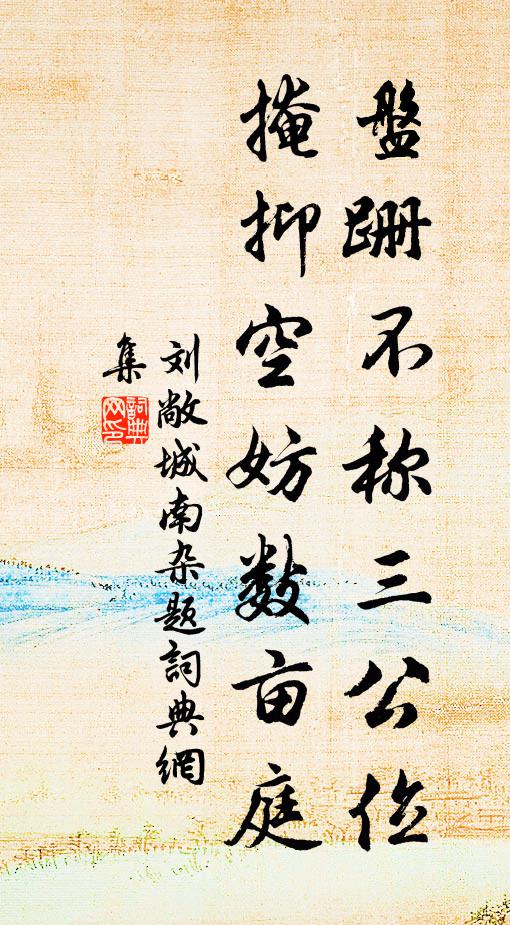 盤跚不称三公位
掩抑空妨数亩庭
刘敞城南杂题詞典網
集
詞典网印